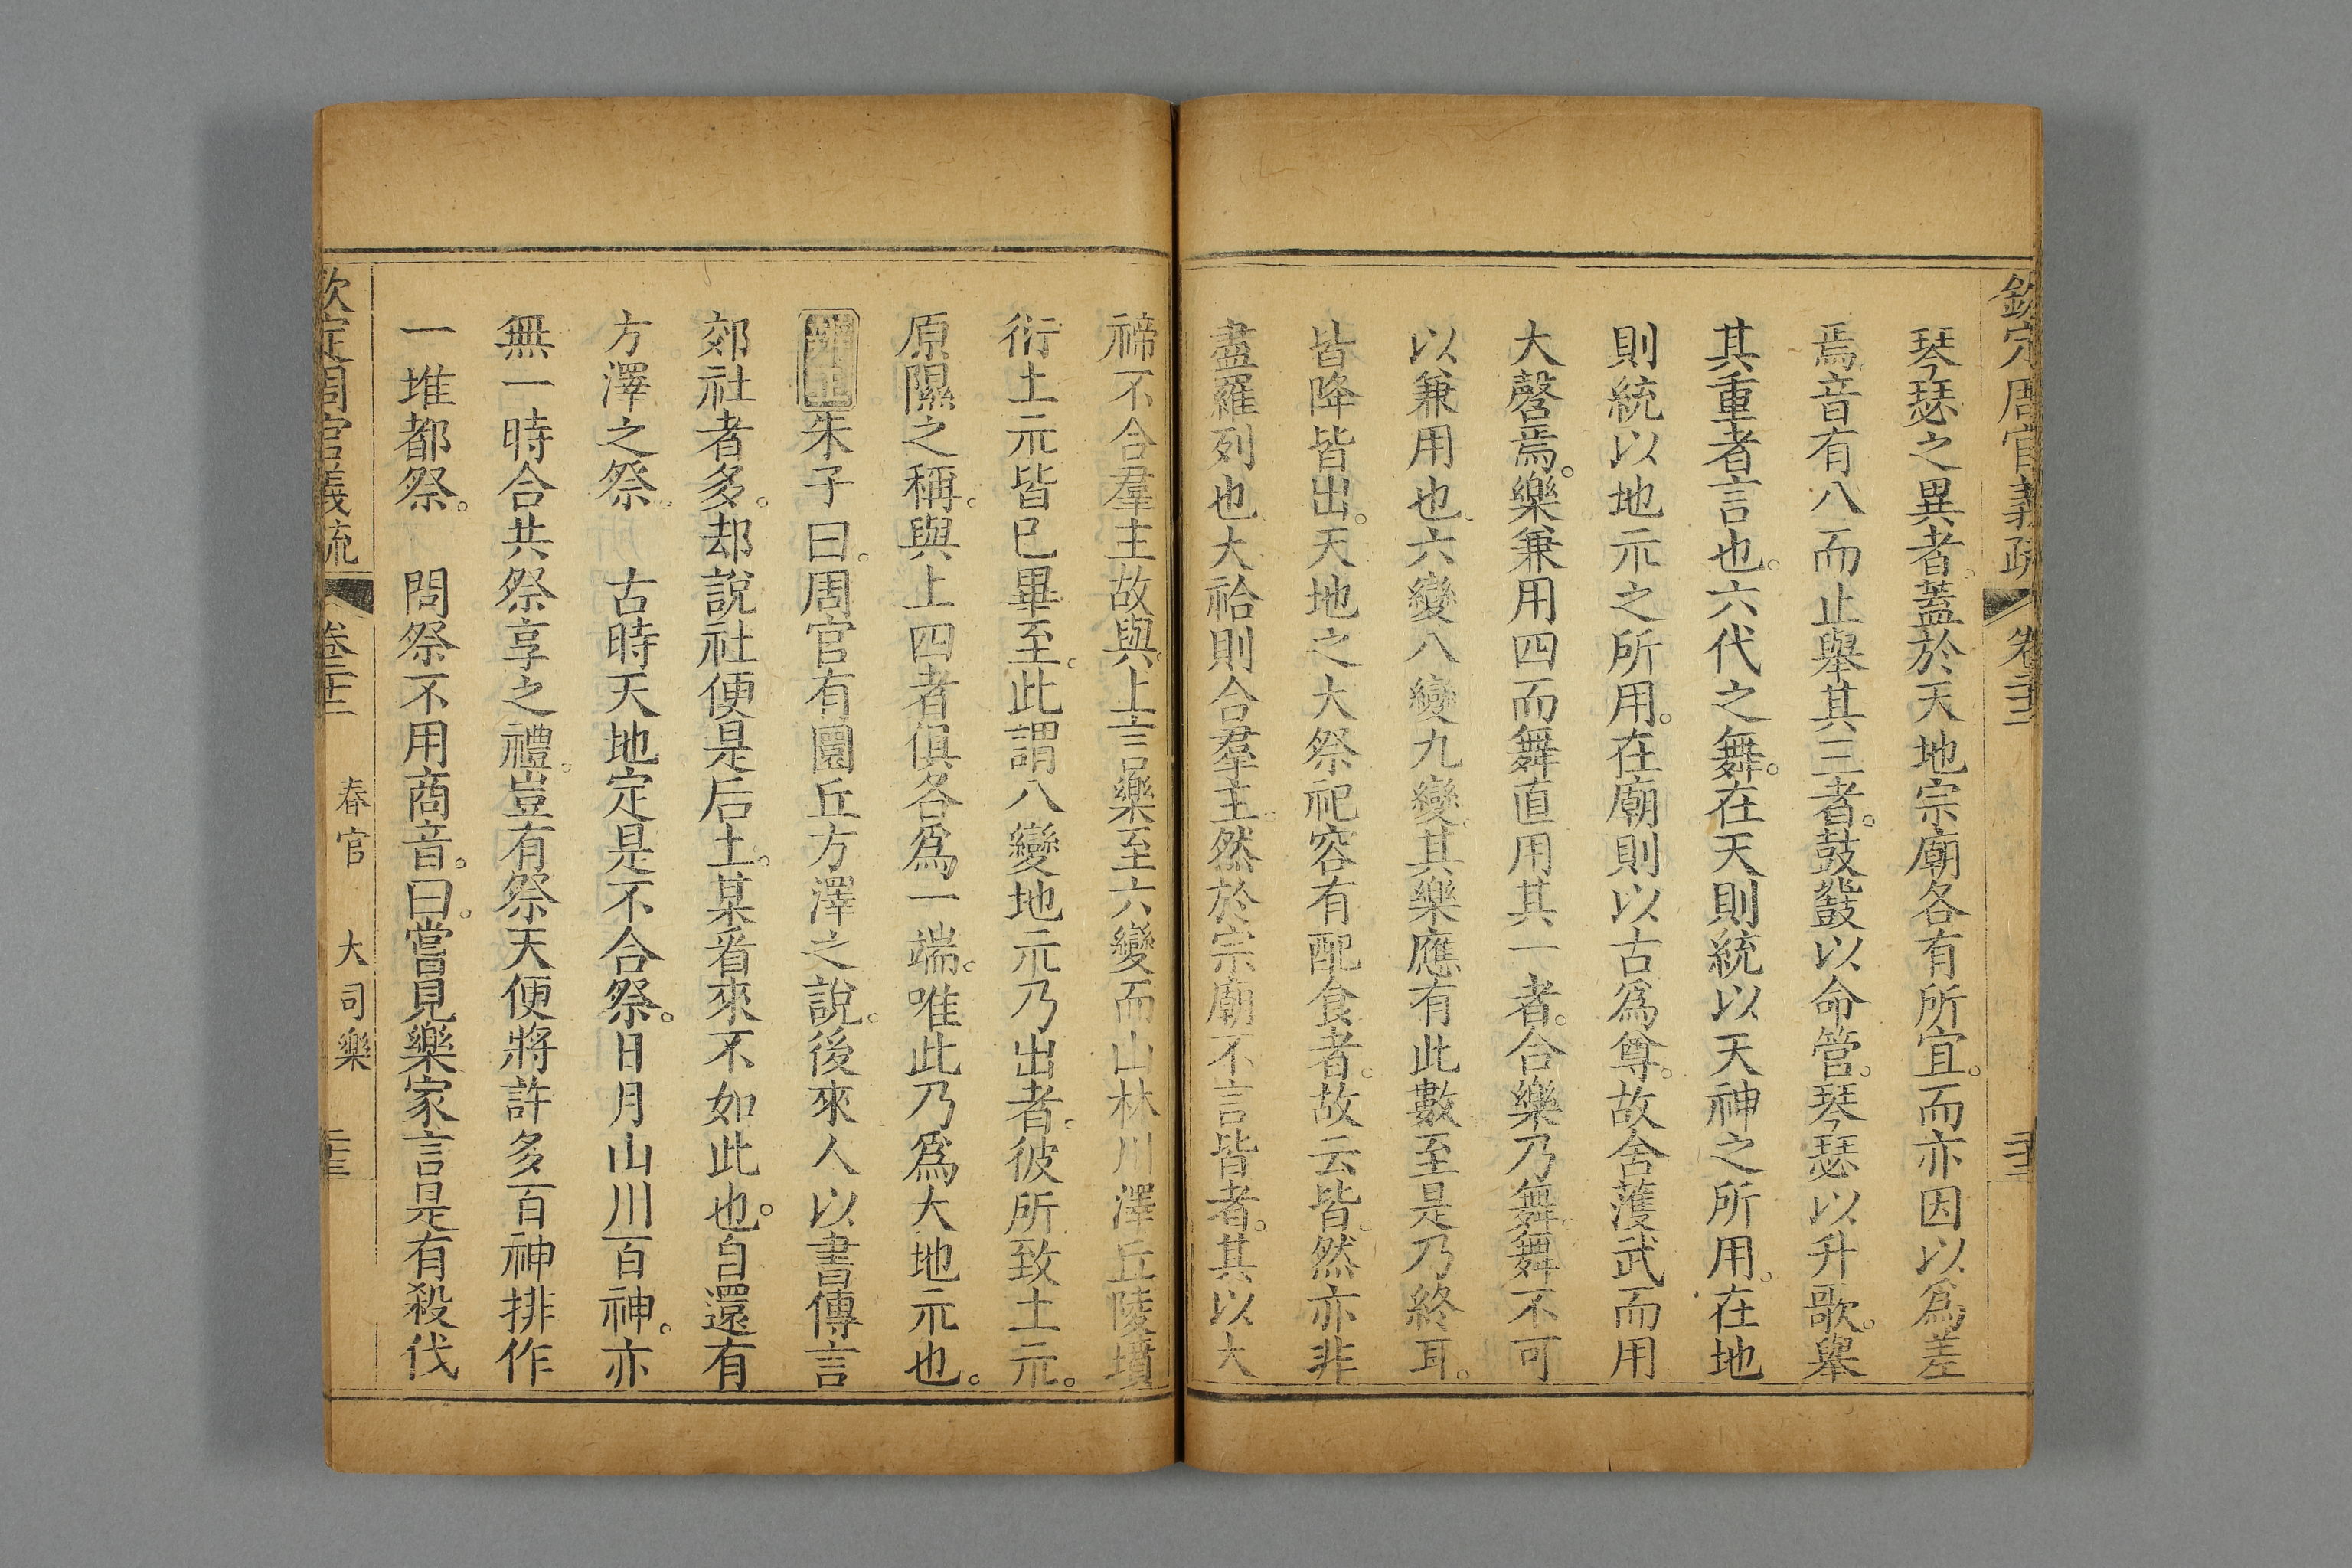 欽定周官義疏 卷二十二 二十三
琴瑟之異者。蓋於天地宗廟各有所宜。而亦因以爲差
焉。音有八而止舉其三者。鼓鼗以命管。琴瑟以升歌。舉
其重者言也。六代之舞。在天則統以天神之所用。在地
則統以地示之所用。在廟則以古爲尊。故舍濩武而用
大磬焉。樂兼用四而舞直用其一者。合樂乃舞。舞不可
以兼用也。六變八變九變。其樂應有此數。至是乃終耳。
皆降皆出。天地之大祭祀容有配食者。故云皆。然亦非
盡羅列也。大祫則合羣主。然於宗廟不言皆者。其以大
禘不合羣主故與。上言樂至六變而山林川澤丘陵墳
衍土示皆已畢至。此謂八變地示乃出者。彼所致土示。
原隰之稱。與上四者俱各爲一端。唯此乃爲大地示也。
辨正朱子曰。周官有圜丘方澤之說。後來人以書傳言
郊社者多。却說社便是后土。某看來不如此也。自還有
方澤之祭。 古時天地定是不合祭。日月山川百神。亦
無一時合共祭享之禮。豈有祭天便將許多百神排作
一堆都祭。 問祭不用商音。曰。嘗見樂家言是有殺伐
欽定周官義疏 卷二十二 春官 大司樂 二十三